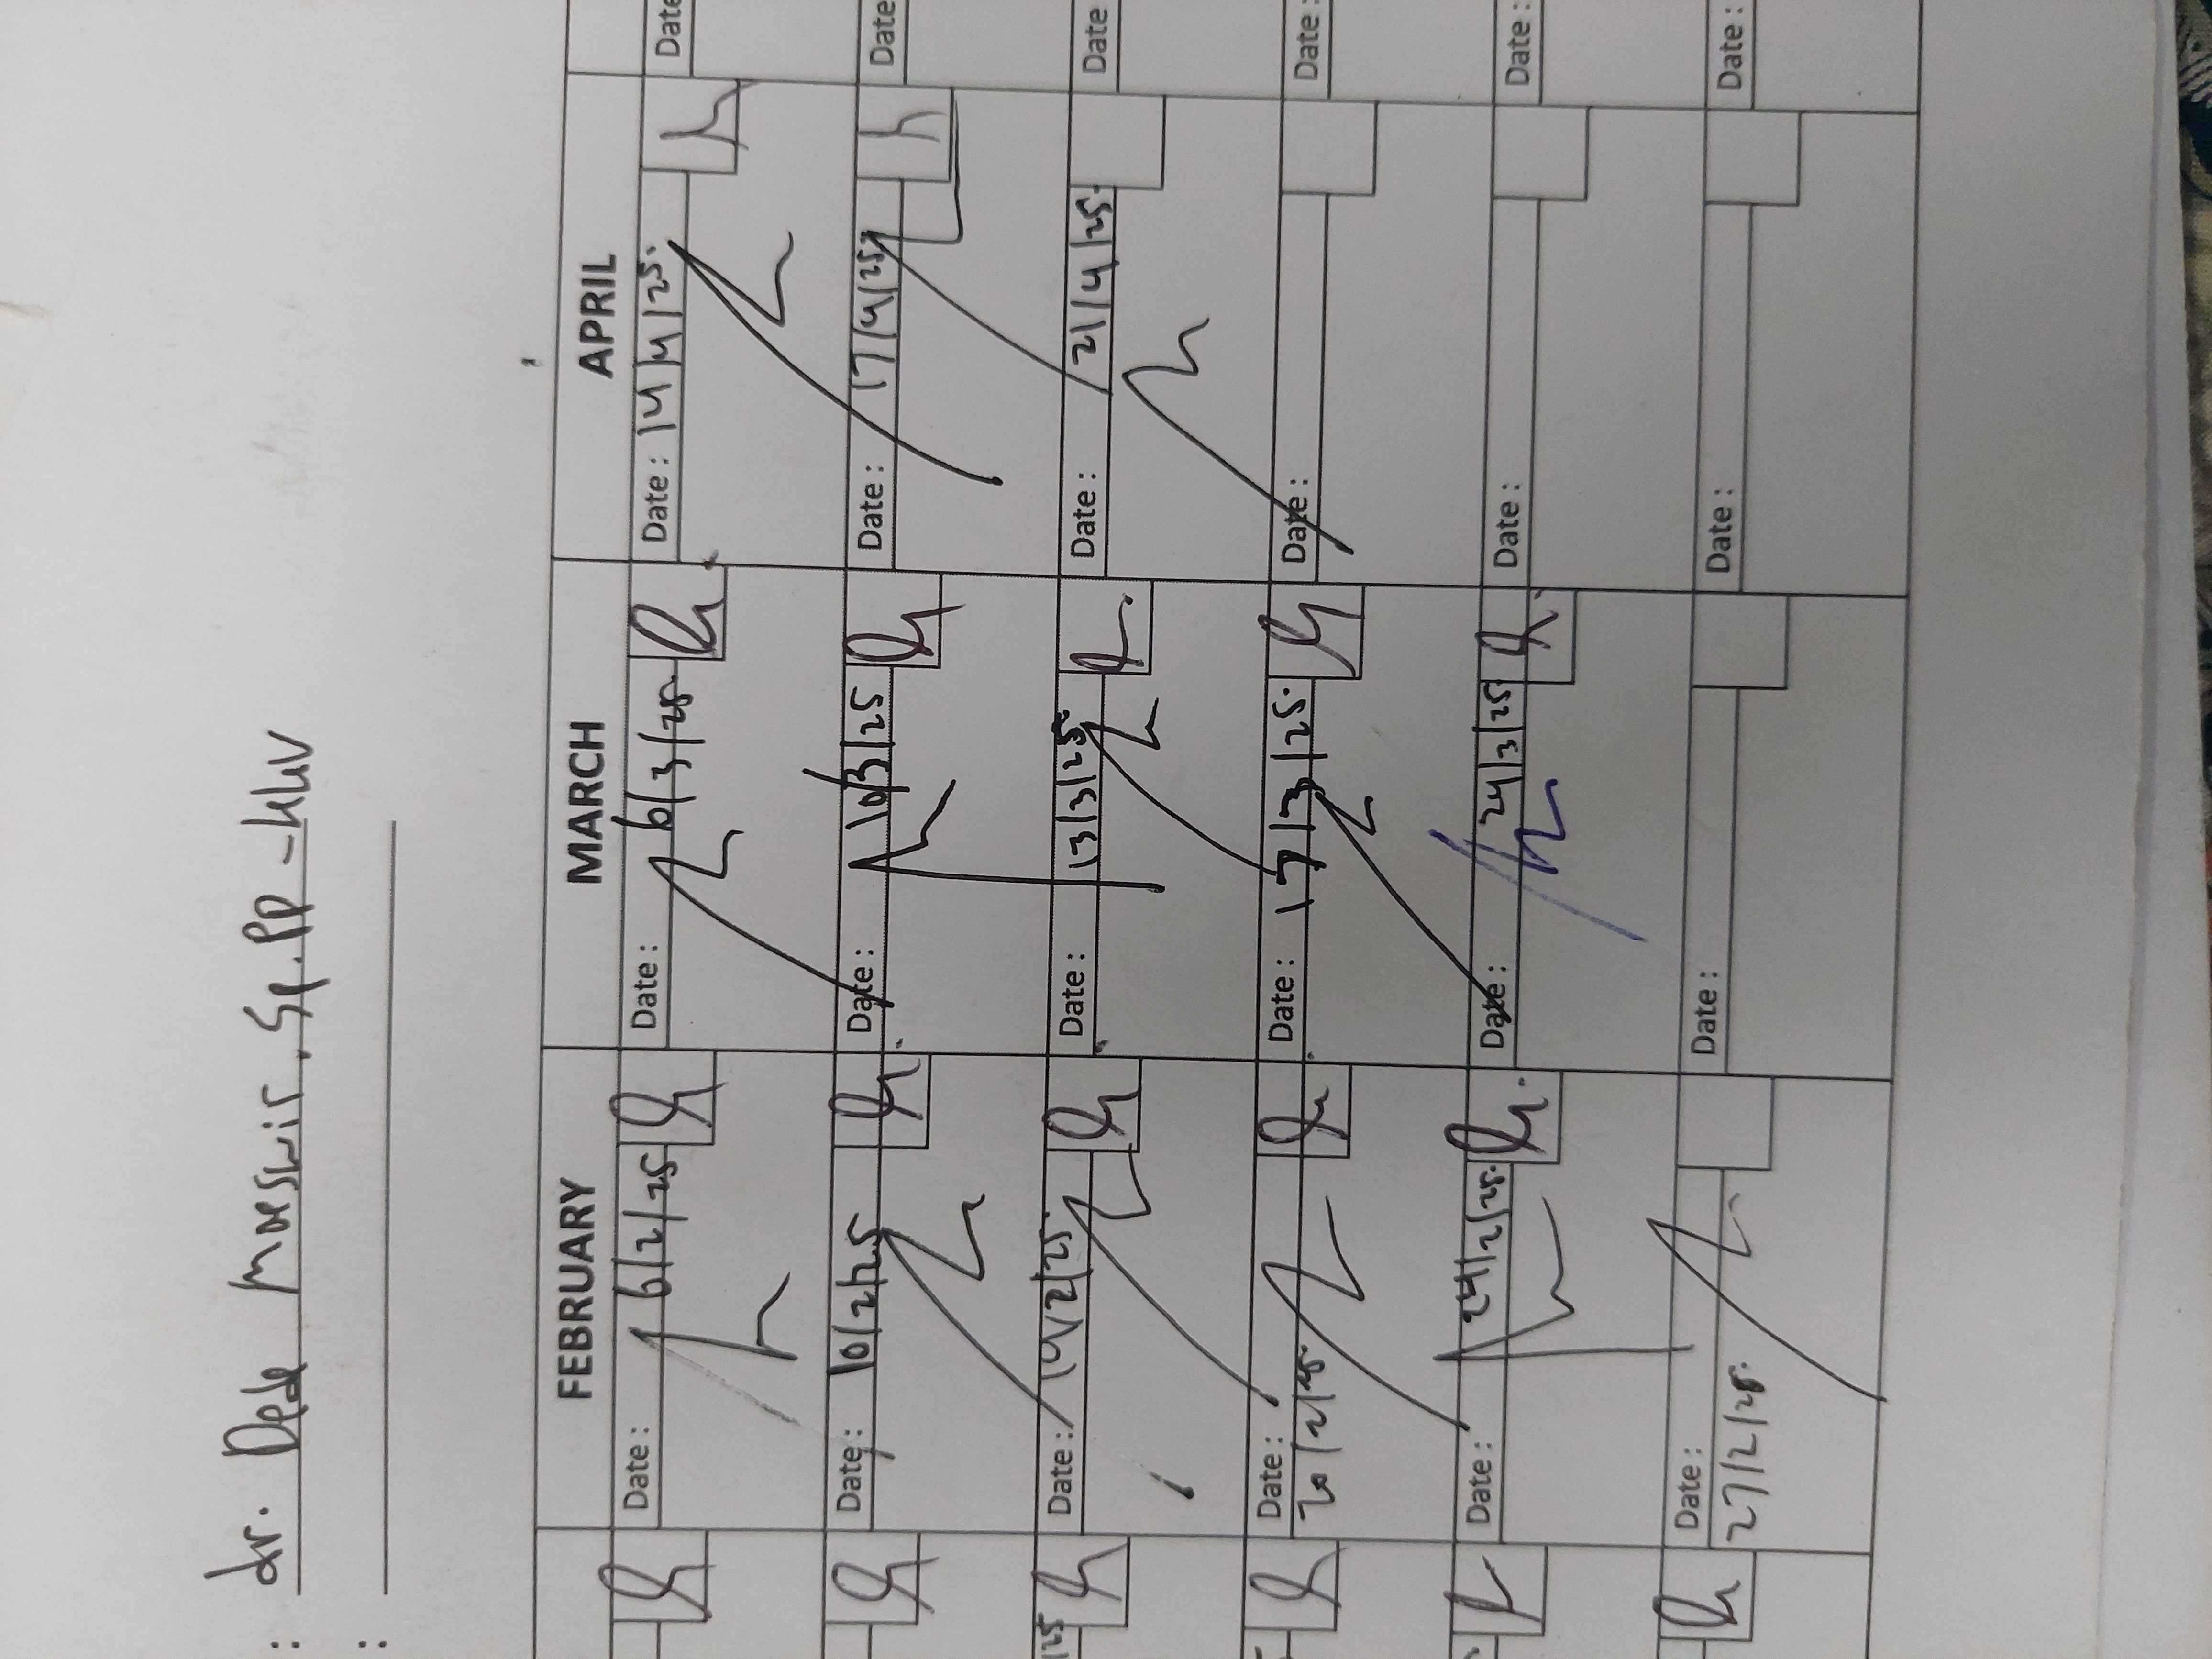 : dr. Dede Moeswir, Sp.PD-KHV
:
FEBRUARY MARCH APRIL
Date: 6/2/25 Date: 6/3/25 Date: 14/4/25. Date
Date: 10/2/25 Date: 10/3/25 Date: 17/4/25 Date
/25 Date: 14/2/25. Date: 13/3/25. Date: 21/4/25. Date
Date: 20/2/25. Date: 17/3/25. Date: Date:
Date: 24/2/25. Date: 24/3/25 Date: Date:
Date: 27/2/25. Date: Date: Date: